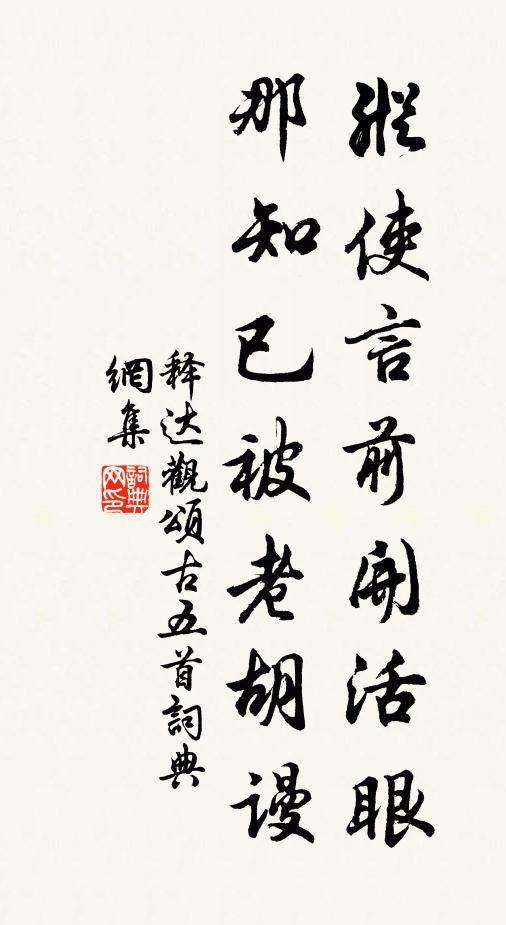 縱使言前開活眼
那知已被老胡谩
释达觀頌古五首詞典
網集
詞典
网印